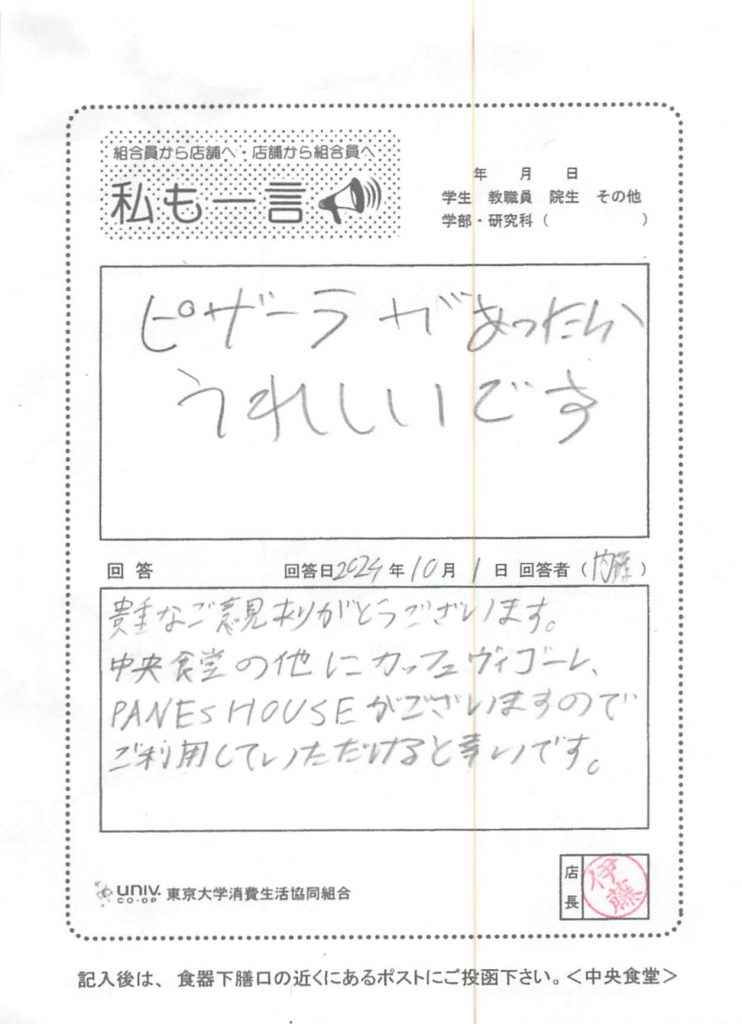 組合員から店舗へ・店舗から組合員へ
私も一言
年 月 日
学生 教職員 院生 その他
学部・研究科（ ）
ピザーラがあったら
うれしいです
回答 回答日2024年10月1日 回答者（内藤）
貴重なご意見ありがとうございます。
中央食堂の他にカッフェヴィゴーレ、
PANES HOUSEがございますので
ご利用していただけると幸いです。
UNIV. CO-OP 東京大学消費生活協同組合
店長 伊藤
記入後は、食器下膳口の近くにあるポストにご投函下さい。＜中央食堂＞